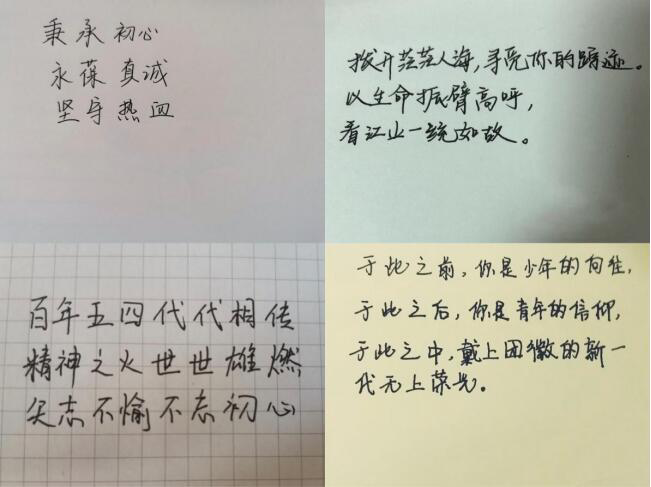 秉承初心
永葆真诚
坚守热血
拨开茫茫人海,寻觅你的踪迹。
以生命振臂高呼,
看江山一统如故。
百年五四代代相传
精神之火世世雄燃
矢志不愉不忘初心
于此之前,你是少年的向往,
于此之后,你是青年的信仰,
于此之中,戴上团徽的新一
代无上荣光。